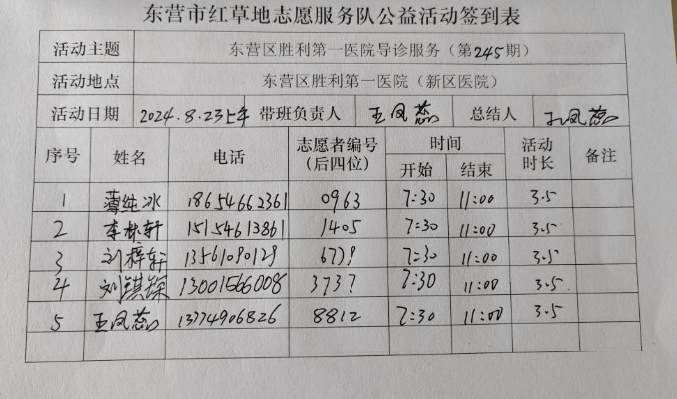 东营市红草地志愿服务队公益活动签到表
活动主题 东营区胜利第一医院导诊服务（第245期）
活动地点 东营区胜利第一医院（新区医院）
活动日期 2024.8.23上午 带班负责人 王凤蕊 总结人 王凤蕊
序号 姓名 电话 志愿者编号（后四位） 时间 开始 结束 活动时长 备注
1 薄纯冰 18654662361 0963 7:30 11:00 3.5
2 李林轩 15154613861 1405 7:30 11:00 3.5
3 刘梓轩 13561090129 6779 7:30 11:00 3.5
4 刘镇琛 13001566008 3737 7:30 11:00 3.5
5 王凤蕊 13774906826 8812 7:30 11:00 3.5